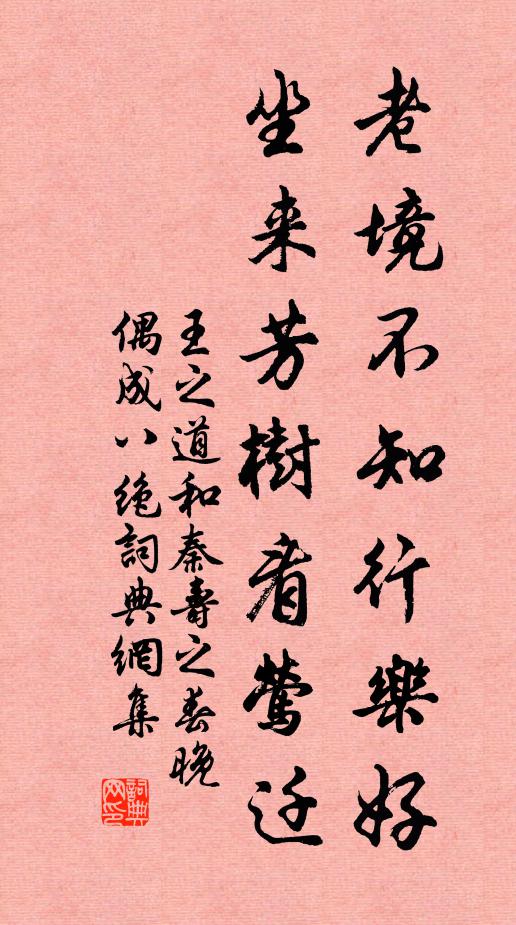 老境不知行樂好
坐来芳樹看鶯迁
王之道和秦壽之春晚
偶成八绝詞典網集
詞典
网印